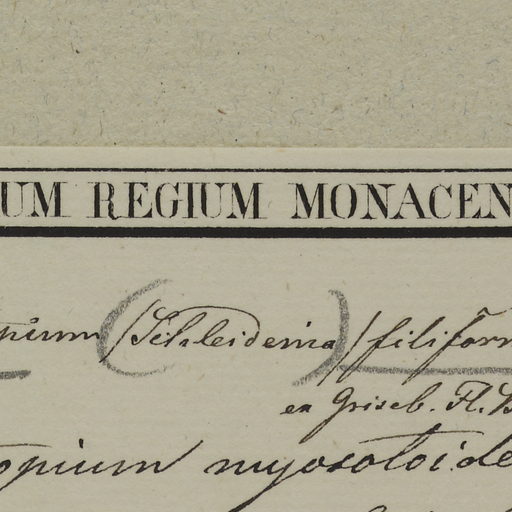 UM REGIUM MONACEN
pium (/Schleidenia)/filiform
en Griseb. Fl. B
opium myosotoide